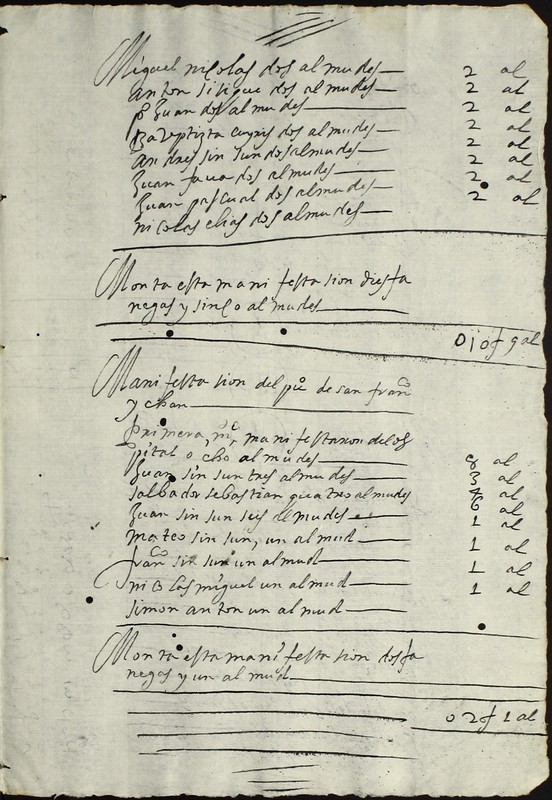 Miguel nicolas dos almudes 2 al
anton dos almudes 2 al
po Juan dos almudes 2 al
baptista dos almudes 2 al
andres sin sun dos almudes 2 al
Juan dos almudes 2 al
Juan pascual dos almudes 2 al
nicolas elias dos almudes 2 al
Monta esta manifestasion dies fa
negas y almudes
010 f 9 al
Manifestasion del po de san franco
y chan
Primeramte manifestaron del os
pital ocho almudes 8 al
Juan sin sun tres almudes 3 al
salbador sebastian quatro almudes 4 al
Juan sin sun seis almudes 6 al
mateo sin sun, un almud 1 al
franco sin sun un almud 1 al
nicolas miguel un almud 1 al
simon anton un almud 1 al
Monta esta manifestasion dos fa
negas y un almud
02 f 1 al